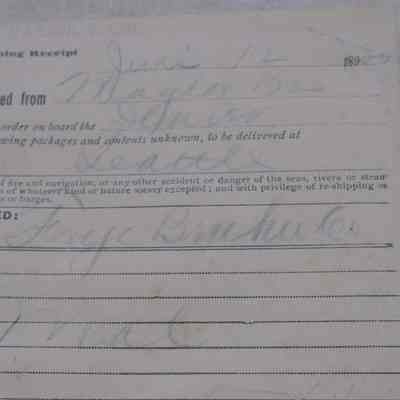 ping Receipt
June 12 189
ed from
order on board the
wing packages and contents unknown, to be delivered at
Seattle
d fire and navigation, or any other accident or danger of the seas, rivers or steam
s of whatever kind or nature soever excepted; and with privilege of re-shipping in
s or barges.
ED:
Frye Bruhn Co.
Meat